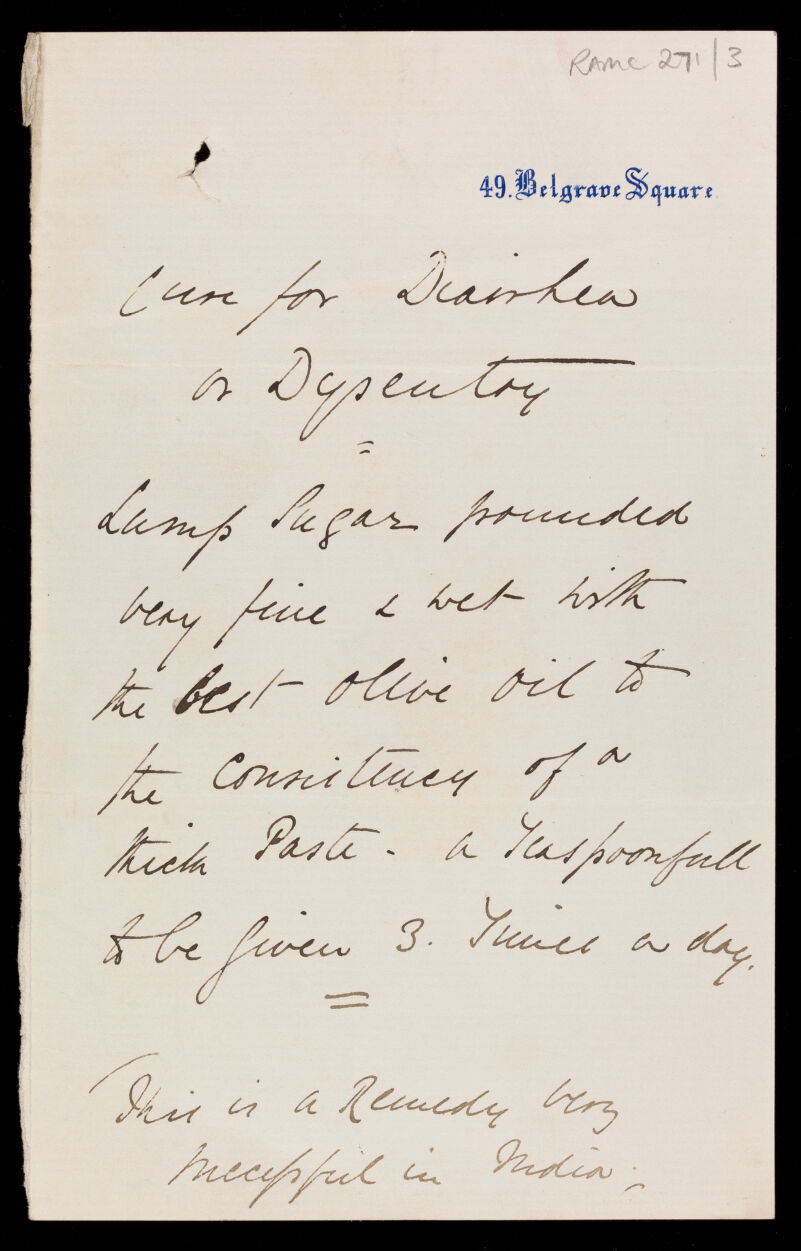 RAMC 271/3
49. Belgrave Square
Cure for Diairhea
or Dysentry
=
Lump Sugar pounded
very fine & wet with
the best olive oil to
the Consistency of a
thick Paste - a Teaspoonfull
to be given 3. Times a day.
=
This is a Remedy very
successful in India.